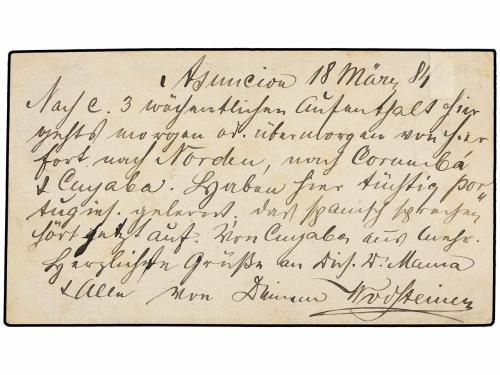 Asuncion 18 März 84
Nach c. 3 wöchentlichen Aufenthalt hier
gehts morgen od. übermorgen von hier
fort nach Norden, nach Corumbá
& Cuyaba. Haben hier tüchtig por
tugies. gelernt, das spanisch sprechen
hört jetzt auf. Von Cuyaba aus mehr.
Herzlichste Grüße an Dich, D. Mama
& Alle von Deinem